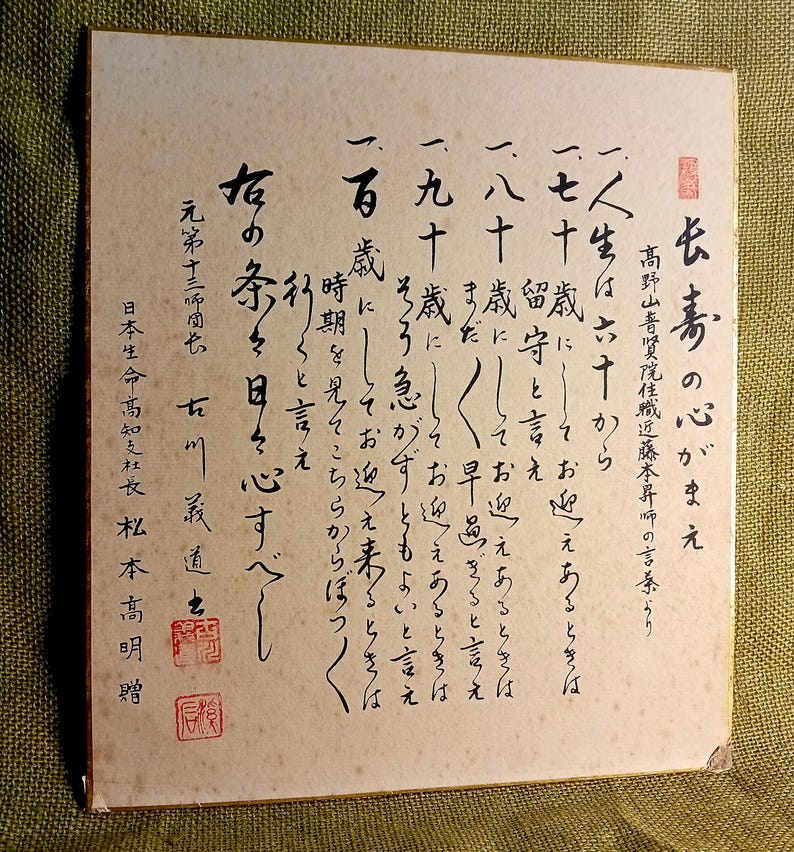 長寿の心がまえ
高野山普賢院住職近藤本昇師の言葉より
一、人生は六十から
一、七十歳にしてお迎えあるときは
留守と言え
一、八十歳にしてお迎えあるときは
まだ〱早過ぎると言え
一、九十歳にしてお迎えあるときは
そう急がずともよいと言え
一、百歳にしてお迎え来るときは
時期を見てこちらからぼつ〱
行くと言え
右の条々日々心すべし
元第十三師団長 古川義道
日本生命高知支社長 松本高明 贈